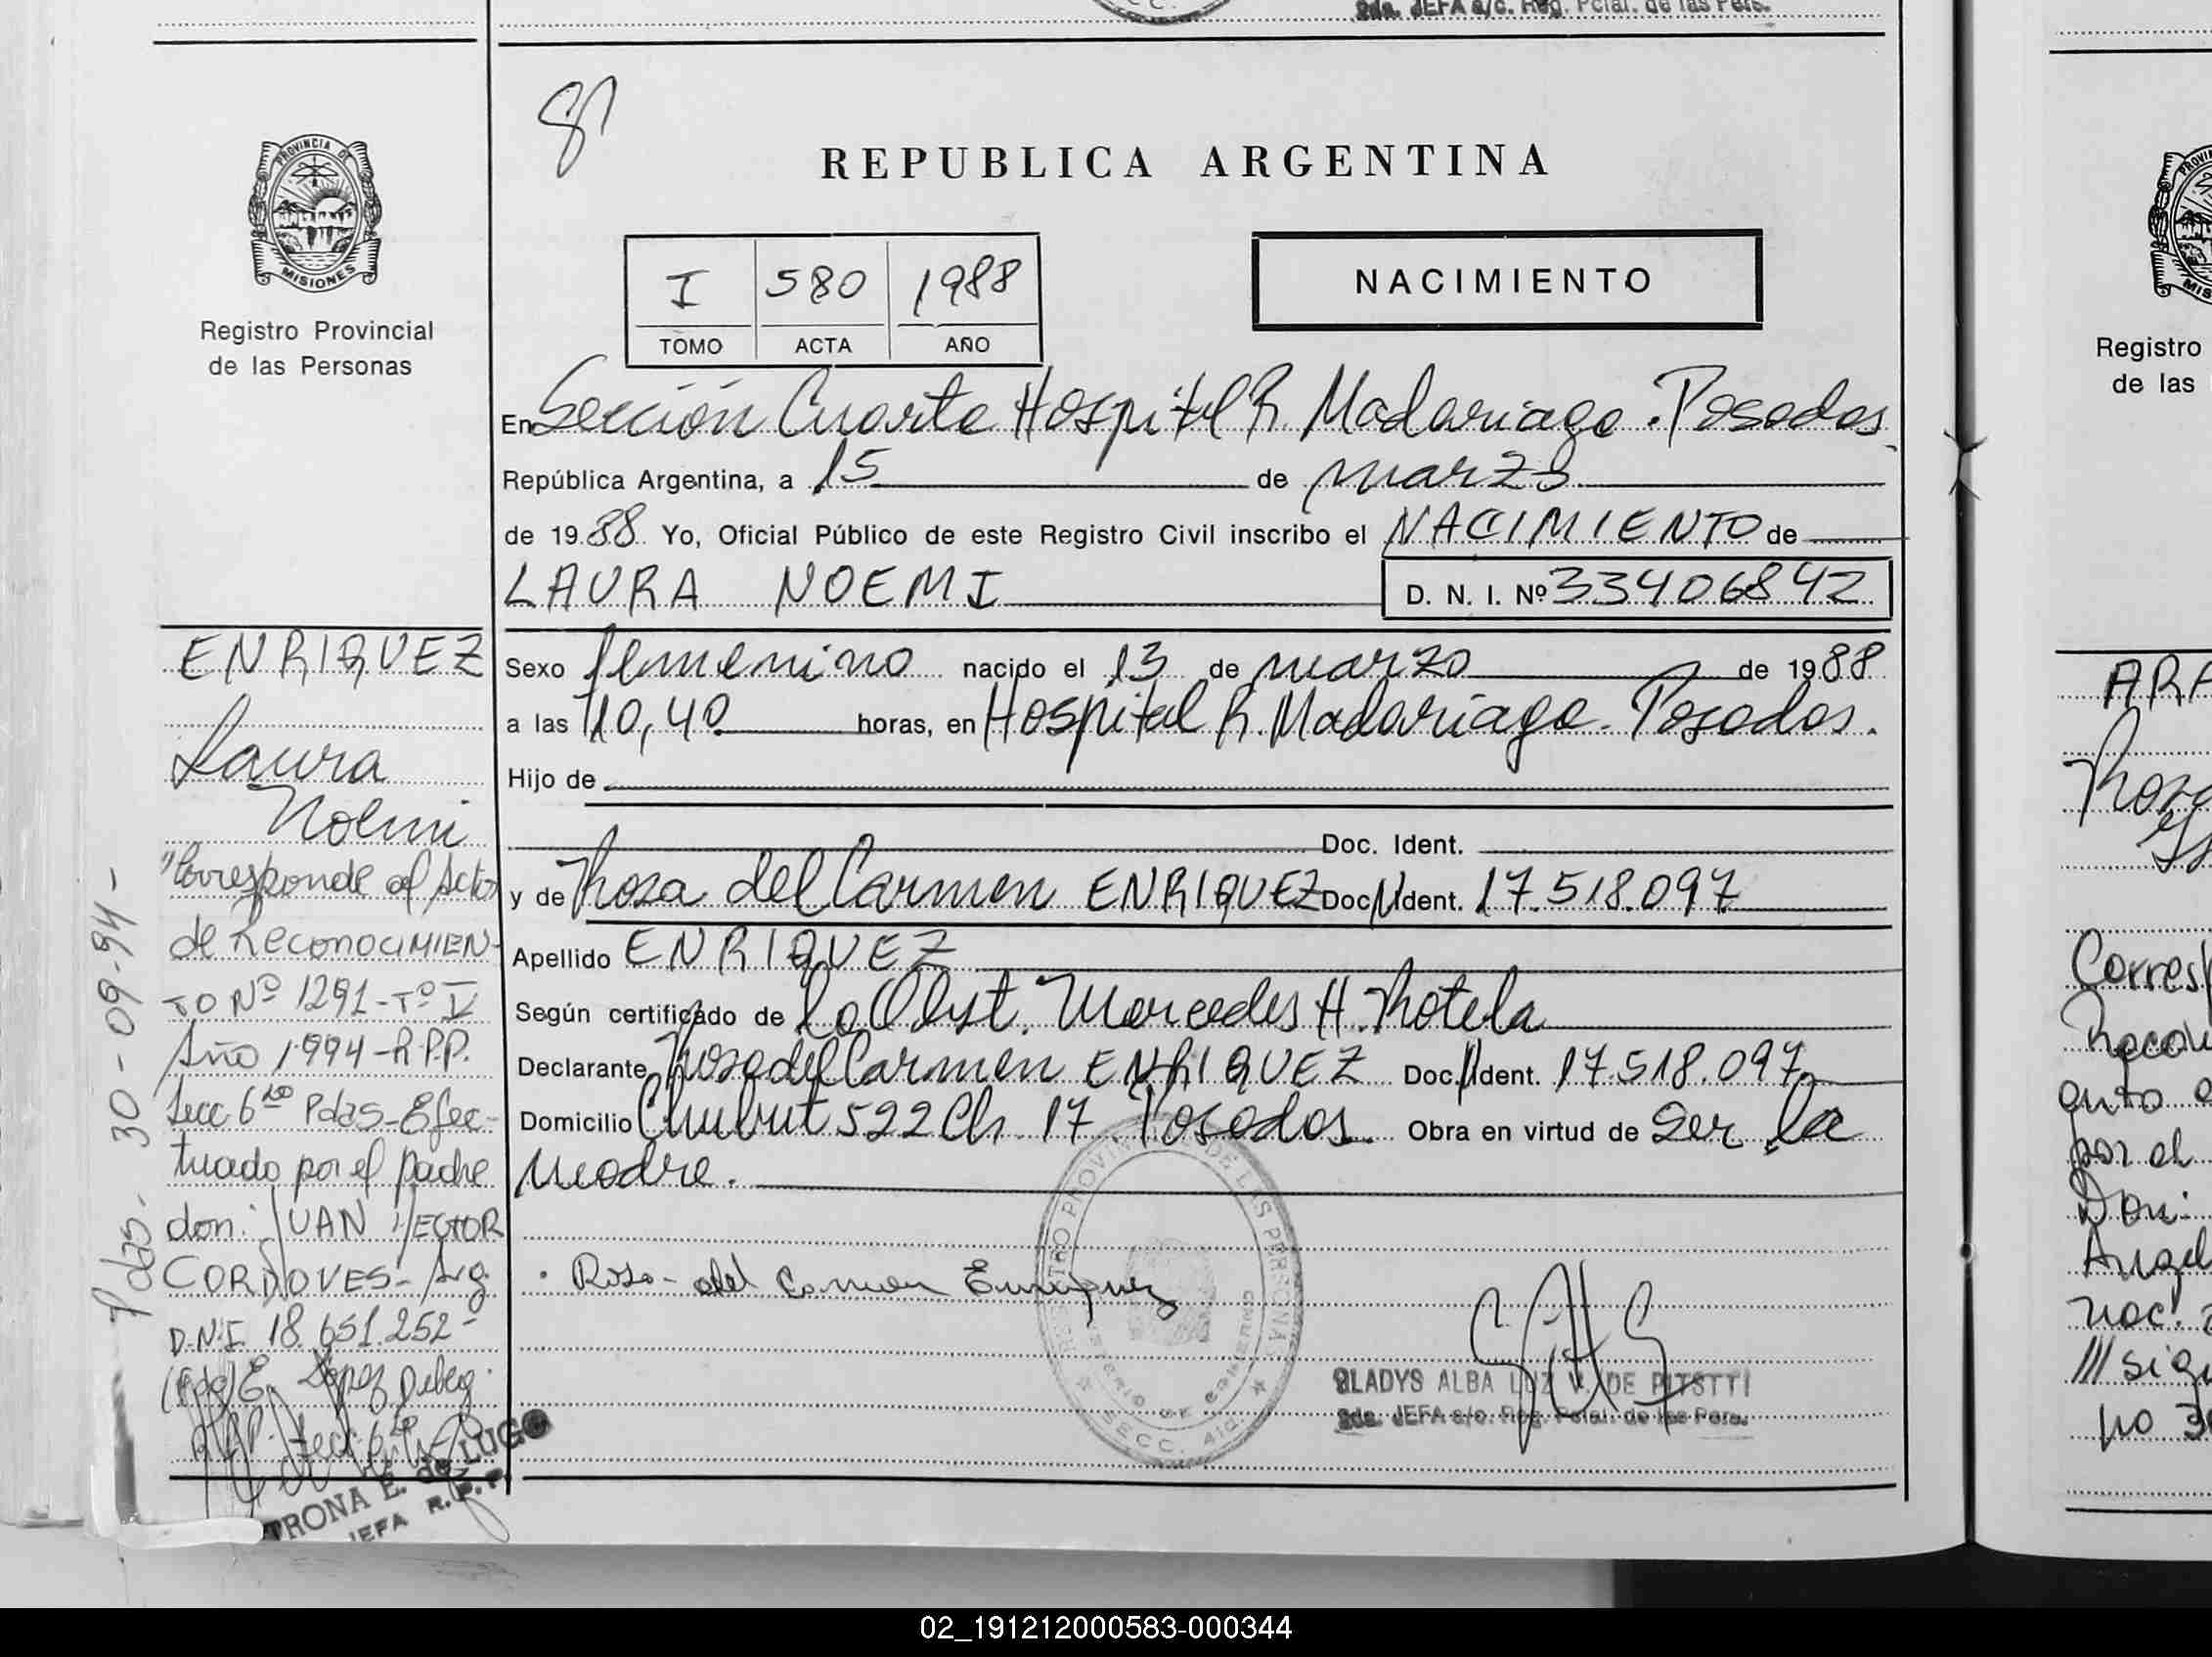 Sda. JEFA a/c. Reg. Pcial. de las Pers.
REPUBLICA ARGENTINA
PROVINCIA DE
MISIONES
Registro Provincial
de las Personas
I 580 1988
TOMO ACTA AÑO
NACIMIENTO
En Sección Cuarta Hospital R. Madariaga. Posadas
República Argentina, a 15 de marzo
de 1988 Yo, Oficial Público de este Registro Civil inscribo el NACIMIENTO de
LAURA NOEMI D. N. I. Nº 33406842
Sexo femenino nacido el 13 de marzo de 1988
a las 10,40 horas, en Hospital R. Madariaga. Posadas.
Hijo de
Doc. Ident.
y de Rosa del Carmen ENRIQUEZ Doc. Ident. 17.518.097
Apellido ENRIQUEZ
Según certificado de la Obst. Mercedes H. Rotela
Declarante Rosa del Carmen ENRIQUEZ Doc. Ident. 17.518.097
Domicilio Chubut 522 Ch. 17 Posadas. Obra en virtud de ser la
madre.
Rosa del Carmen Enriquez
REGISTRO PROVINCIAL DE LAS PERSONAS
MINISTERIO DE GOBIERNO
SECC. 4ta.
GLADYS ALBA LUZ V. DE PITSTTI
Sda. JEFA a/c. Reg. Pcial. de las Pers.
ENRIQUEZ
Laura
Noemi
"Corresponde al Acta
de Reconocimien-
to Nº 1291-Tº V
Año 1994-R.P.P.
Secc 6ta Pdas-Efec-
tuado por el padre
don: JUAN HECTOR
CORDOVES- Arg.
D.N.I. 18.651.252-
(Fdo) E. Lopez Deleg.
R.P.P. Secc 6ta
Pdas. 30-09-94-
TRONA E. de LUGO
JEFA R.P.P.
Registro
de las
ARA
Rosa
Corresp
Recon
por el
Don:
Angel
02_191212000583-000344